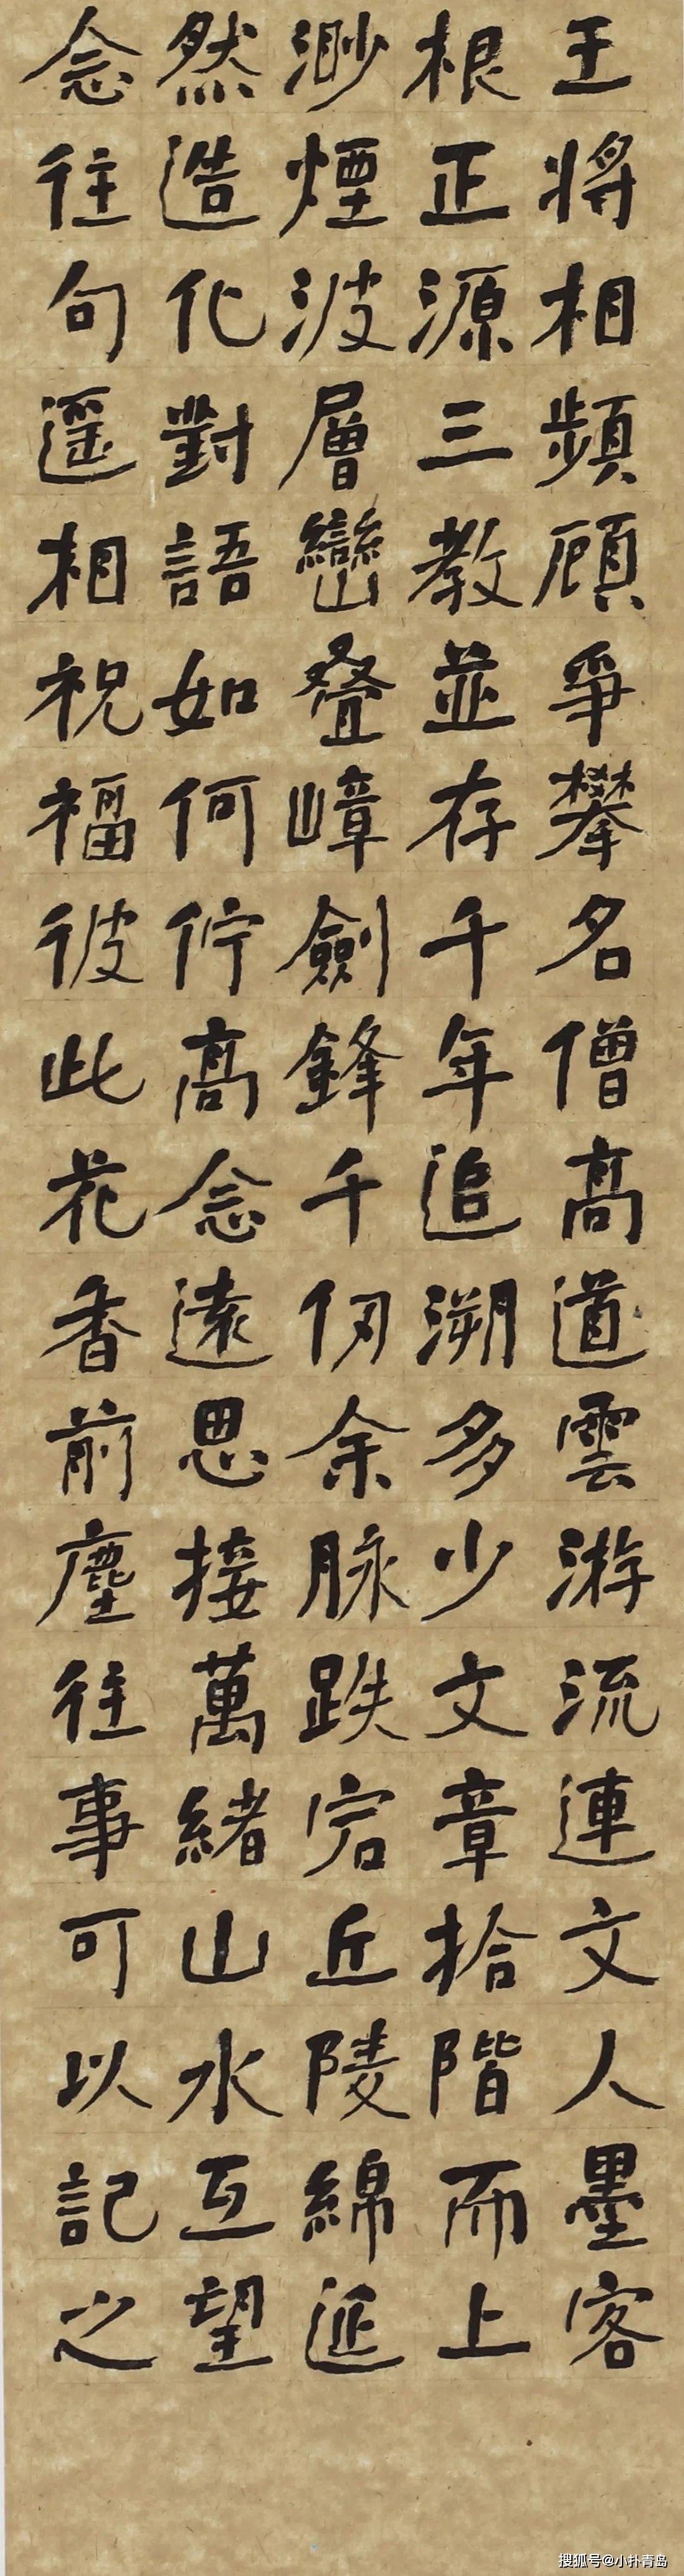 王将相頻顧爭攀名僧高道雲游流連文人墨客
根正源三教並存千年追溯多少文章拾階而上
渺煙波層巒叠嶂劍鋒千仞余脉跌宕丘陵綿延
然造化對語如何佇高念遠思接萬緒山水互望
念往句遥相祝福彼此花香前塵往事可以記之
搜狐号@小扑青岛